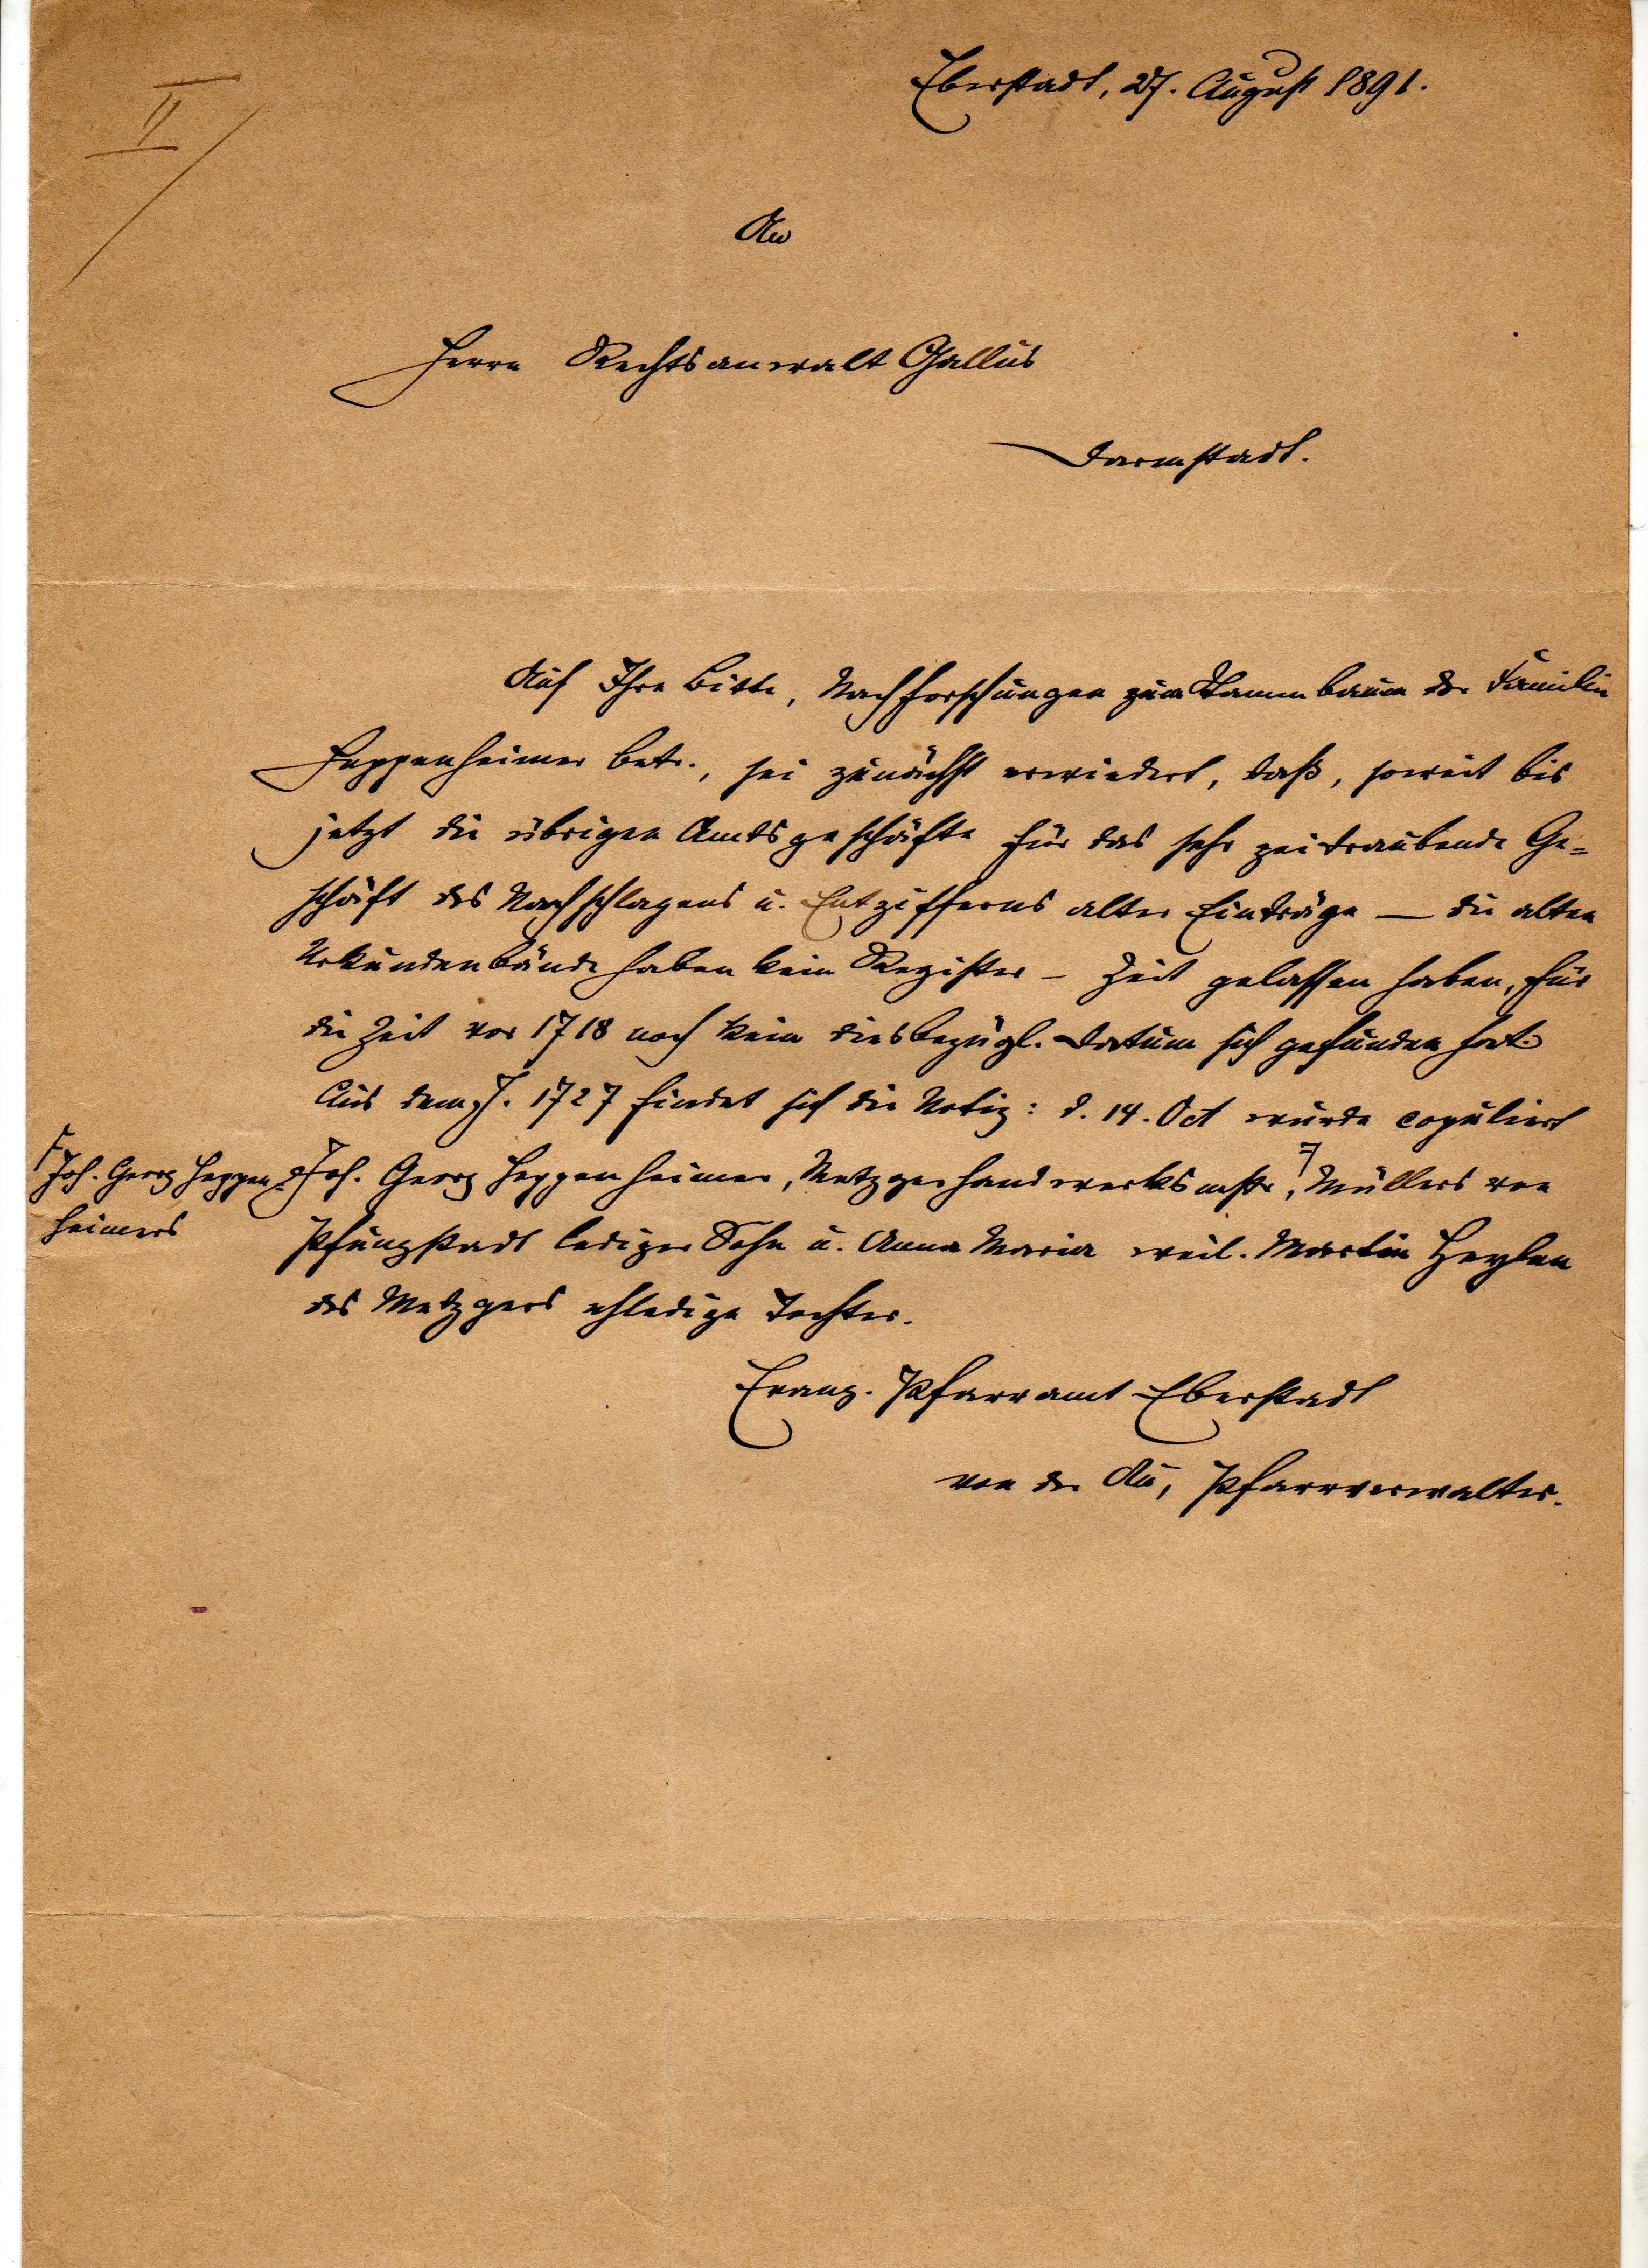 II
Eberstadt, 27. August 1891.
An
Herrn Rechtsanwalt Gallus
Darmstadt.
Auf Ihre Bitte, Nachforschungen zum Stammbaum der Familie
Heppenheimer betr., sei zunächst erwiedert, daß, soweit bis
jetzt die übrigen Amtsgeschäfte für das sehr zeitraubende Ge=
schäft des Nachschlagens u. Entzifferns alter Einträge — die alten
Urkundenbände haben kein Register — Zeit gelassen haben, für
die Zeit vor 1718 noch kein diesbezügl. Datum sich gefunden hat.
Aus dem J. 1727 findet sich die Notiz: d. 14. Oct wurde copuliert
Joh. Georg Heppenheimer, Metzgerhandwerksmstr, Müllers von
Joh. Georg Heppen=
heimers
Pfungstadt lediger Sohn u. Anna Maria weil. Martin
des Metzgers ehledige Tochter.
Evang. Pfarramt Eberstadt
von der Au, Pfarrverwalter.